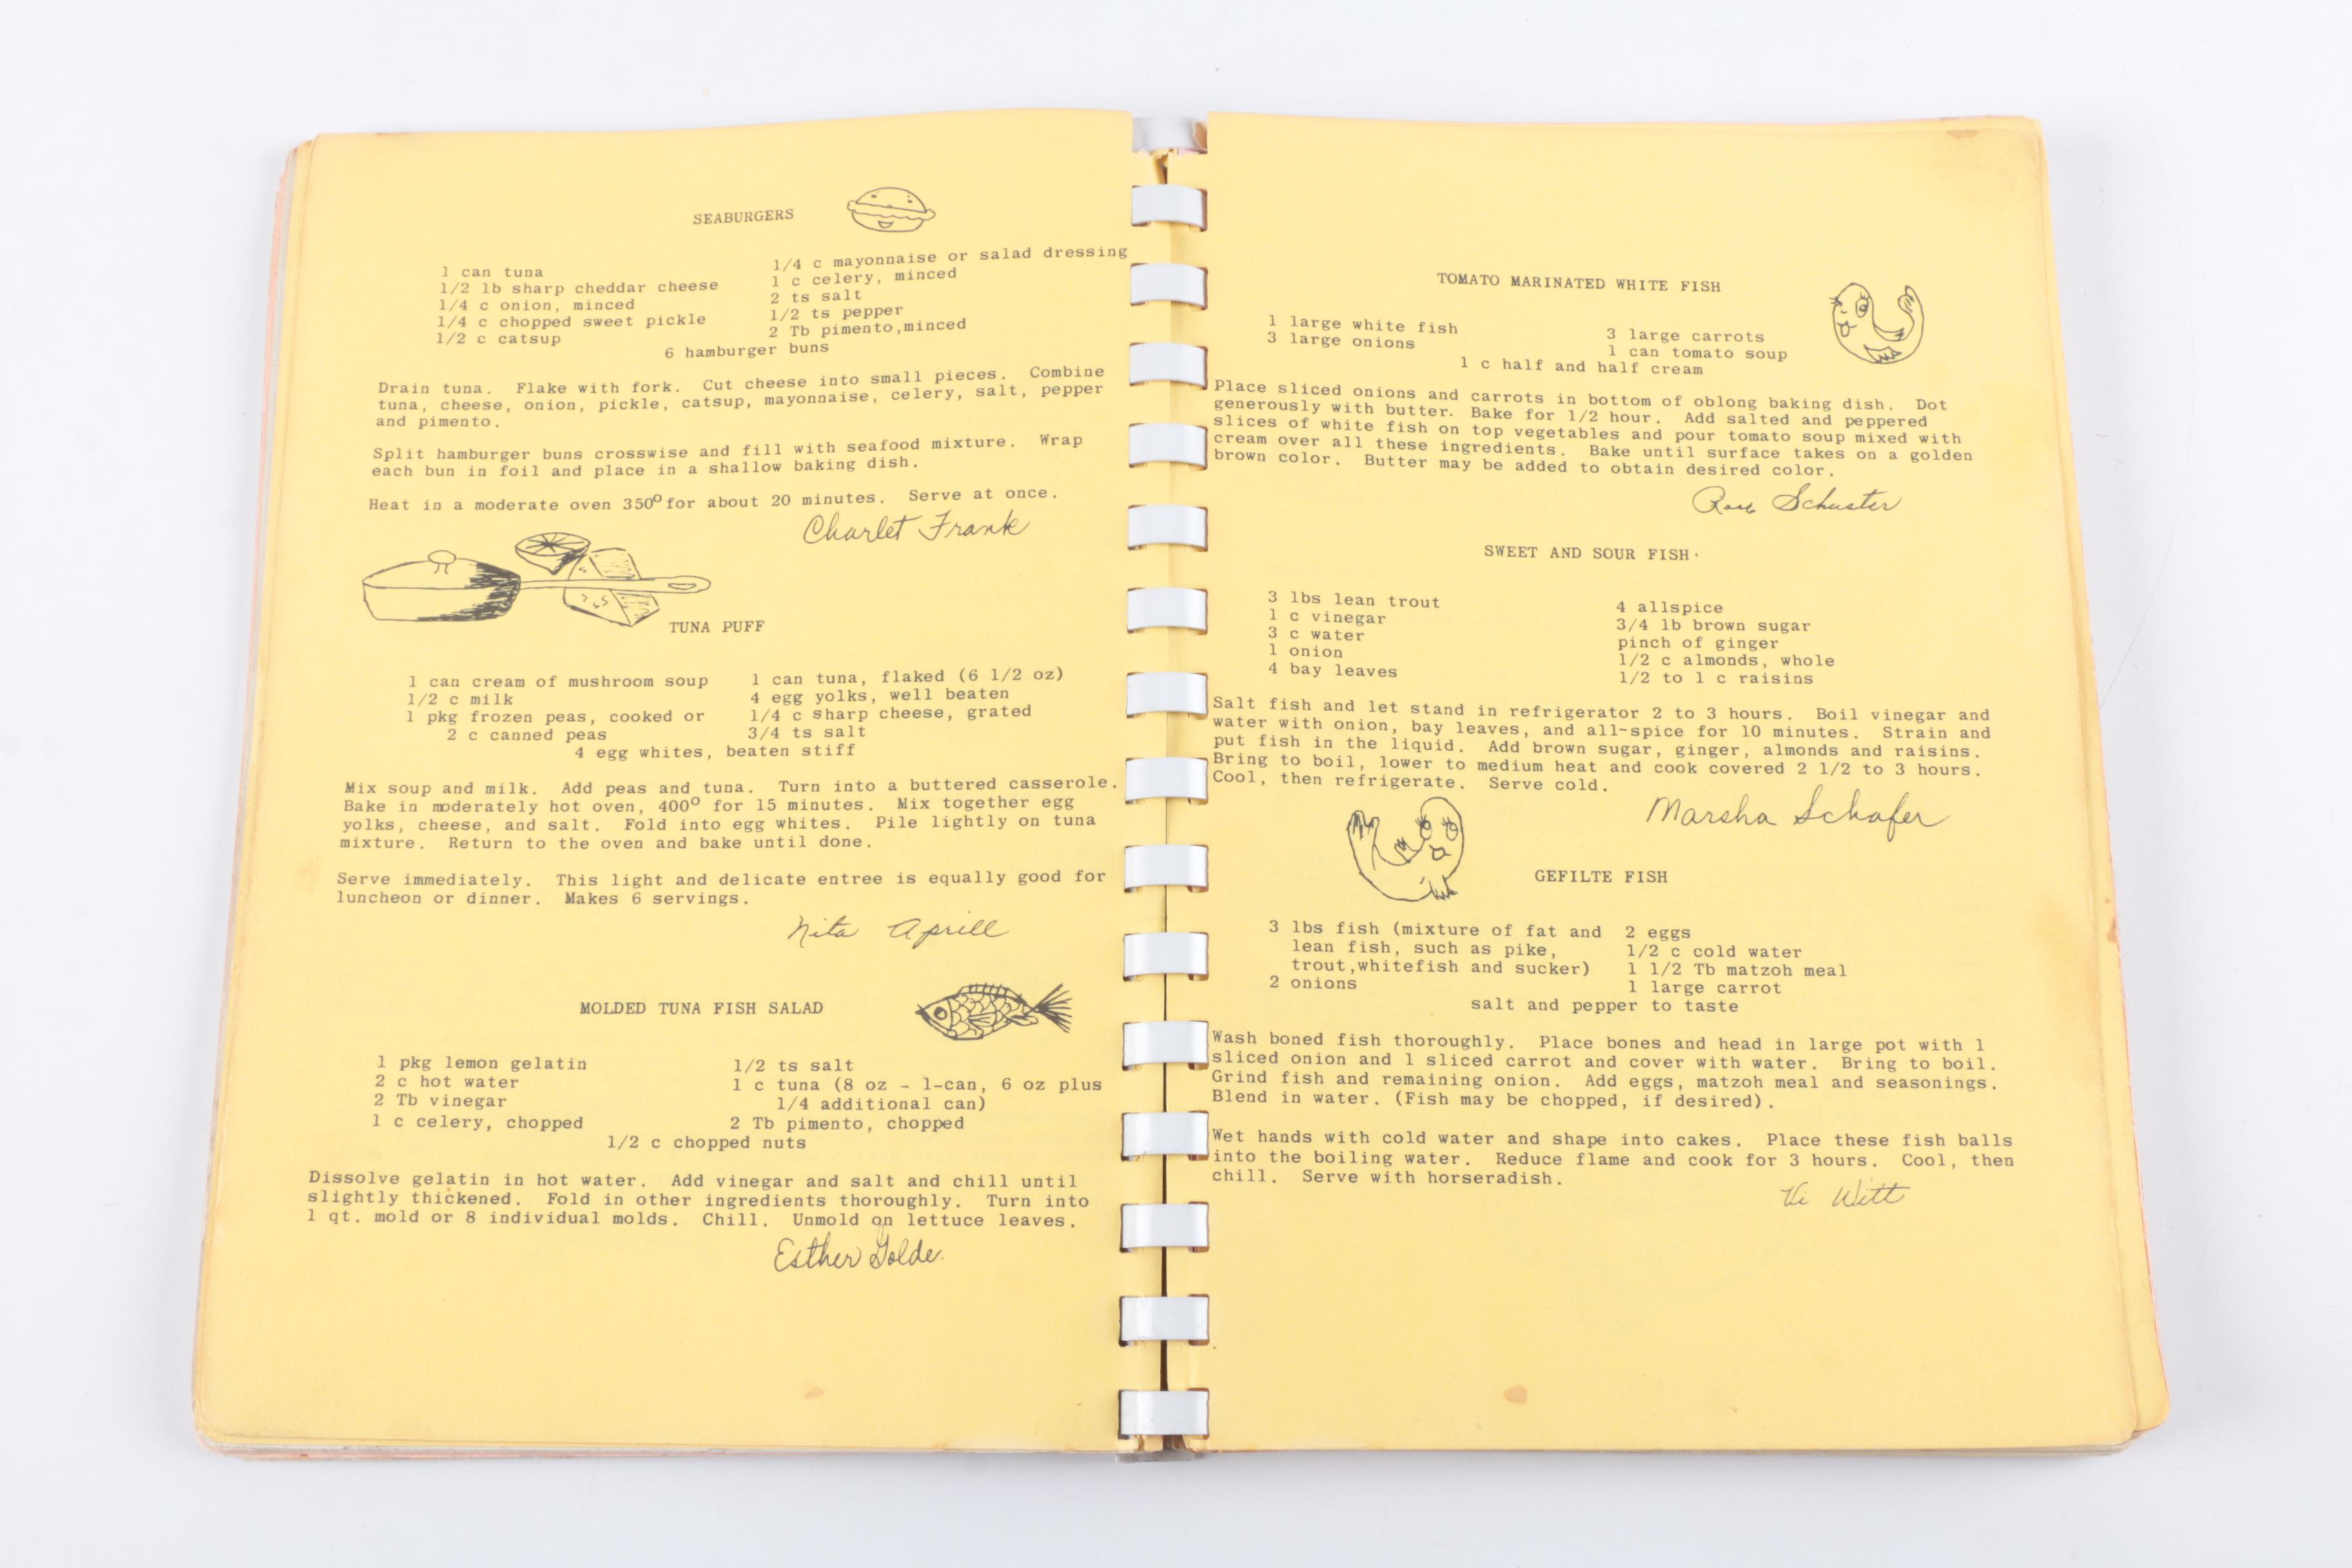 SEABURGERS
1 can tuna
1/2 lb sharp cheddar cheese
1/4 c onion, minced
1/4 c chopped sweet pickle
1/2 c catsup
1/4 c mayonnaise or salad dressing
1 c celery, minced
2 ts salt
1/2 ts pepper
2 Tb pimento,minced
6 hamburger buns
Drain tuna. Flake with fork. Cut cheese into small pieces. Combine
tuna, cheese, onion, pickle, catsup, mayonnaise, celery, salt, pepper
and pimento.
Split hamburger buns crosswise and fill with seafood mixture. Wrap
each bun in foil and place in a shallow baking dish.
Heat in a moderate oven 350° for about 20 minutes. Serve at once.
Charlet Frank
TUNA PUFF
1 can cream of mushroom soup
1/2 c milk
1 pkg frozen peas, cooked or
2 c canned peas
1 can tuna, flaked (6 1/2 oz)
4 egg yolks, well beaten
1/4 c sharp cheese, grated
3/4 ts salt
4 egg whites, beaten stiff
Mix soup and milk. Add peas and tuna. Turn into a buttered casserole.
Bake in moderately hot oven, 400° for 15 minutes. Mix together egg
yolks, cheese, and salt. Fold into egg whites. Pile lightly on tuna
mixture. Return to the oven and bake until done.
Serve immediately. This light and delicate entree is equally good for
luncheon or dinner. Makes 6 servings.
Nita Aprill
MOLDED TUNA FISH SALAD
1 pkg lemon gelatin
2 c hot water
2 Tb vinegar
1 c celery, chopped
1/2 ts salt
1 c tuna (8 oz - 1-can, 6 oz plus
1/4 additional can)
2 Tb pimento, chopped
1/2 c chopped nuts
Dissolve gelatin in hot water. Add vinegar and salt and chill until
slightly thickened. Fold in other ingredients thoroughly. Turn into
1 qt. mold or 8 individual molds. Chill. Unmold on lettuce leaves.
Esther Golde.
TOMATO MARINATED WHITE FISH
1 large white fish
3 large onions
3 large carrots
1 can tomato soup
1 c half and half cream
Place sliced onions and carrots in bottom of oblong baking dish. Dot
generously with butter. Bake for 1/2 hour. Add salted and peppered
slices of white fish on top vegetables and pour tomato soup mixed with
cream over all these ingredients. Bake until surface takes on a golden
brown color. Butter may be added to obtain desired color.
Rose Schuster
SWEET AND SOUR FISH.
3 lbs lean trout
1 c vinegar
3 c water
1 onion
4 bay leaves
4 allspice
3/4 lb brown sugar
pinch of ginger
1/2 c almonds, whole
1/2 to 1 c raisins
Salt fish and let stand in refrigerator 2 to 3 hours. Boil vinegar and
water with onion, bay leaves, and all-spice for 10 minutes. Strain and
put fish in the liquid. Add brown sugar, ginger, almonds and raisins.
Bring to boil, lower to medium heat and cook covered 2 1/2 to 3 hours.
Cool, then refrigerate. Serve cold.
Marsha Schafer
GEFILTE FISH
3 lbs fish (mixture of fat and
lean fish, such as pike,
trout,whitefish and sucker)
2 onions
2 eggs
1/2 c cold water
1 1/2 Tb matzoh meal
1 large carrot
salt and pepper to taste
Wash boned fish thoroughly. Place bones and head in large pot with 1
sliced onion and 1 sliced carrot and cover with water. Bring to boil.
Grind fish and remaining onion. Add eggs, matzoh meal and seasonings.
Blend in water. (Fish may be chopped, if desired).
Wet hands with cold water and shape into cakes. Place these fish balls
into the boiling water. Reduce flame and cook for 3 hours. Cool, then
chill. Serve with horseradish.
Vi Witt